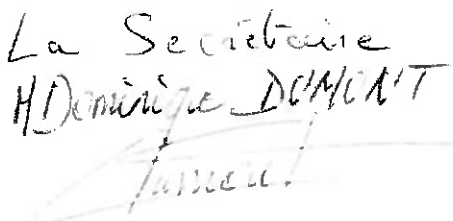 La Secrétaire
M Dominique DUMONT
Dumont